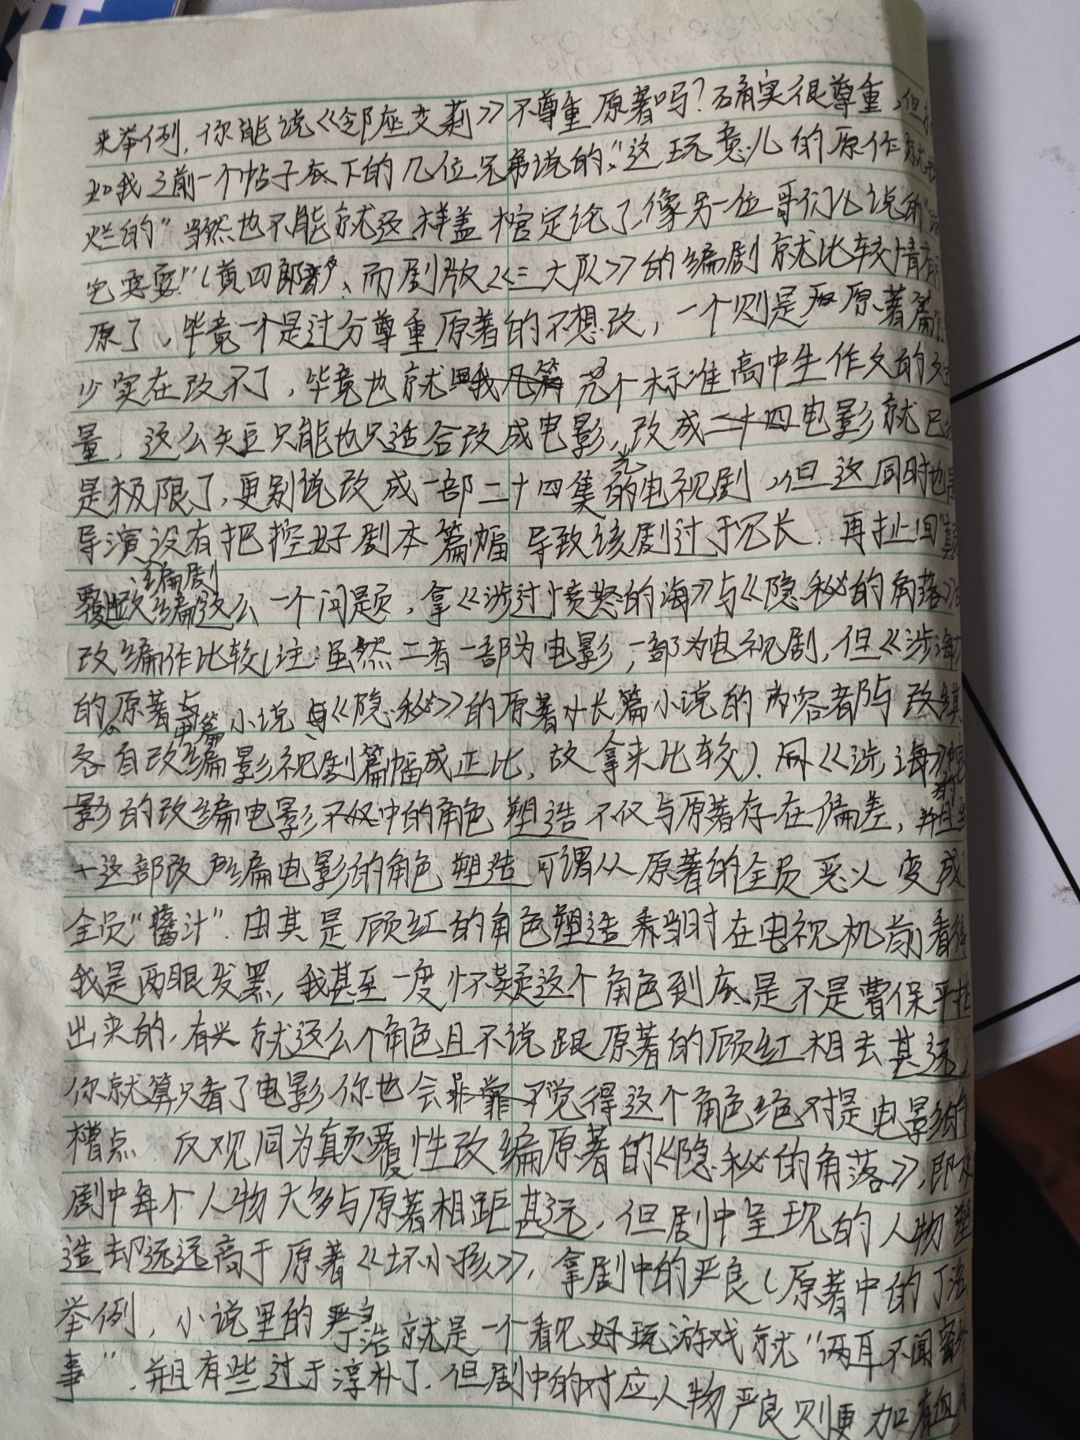 来举例，你能说《邻座艾莉》不尊重原著吗？确实很尊重，但
如我之前一个帖子底下的几位兄弟说的："这玩意儿的原作
烂的"当然也不能就这样盖棺定论了，像另一位哥们儿说的
宅耍耍"（黄四郎  、而剧版《三大队》的编剧就比较情有
原了、毕竟一个是过分尊重原著的不想改，一个则是 原著篇
少实在改不了，毕竟也就 几个标准高中生作文的
量，这么矢豆只能也只适合改成电影，改成电影就已
是极限了，更别说改成一部二十四集的电视剧，但这同时也是
导演没有把控好剧本篇幅导致该剧过于冗长．再扯回
编剧
覆 改编这么一个问题，拿《涉过愤怒的海》与《隐秘的角落》
改编作比较（注：虽然二者一部为电影，一部为电视剧，但《涉海》
的原著 篇小说与《隐秘》的原著 长篇小说的内容都与改 其
各自改编影视剧篇幅成正比，故拿来比较）．《涉海》
影的改编电影 中的角色塑造不仅与原著存在偏差，并且
这部改编电影的角色塑造可谓从原著的全员恶人变成
全员"酱汁"．由其是顾红的角色塑造 当时在电视机前看得
我是两眼发黑，我甚至一度怀疑这个角色到底是不是曹保平
出来的，就这么个角色且不说跟原著的顾红相去甚远，
你就算只看了电影你也会觉得这个角色绝对是电影的
槽点．反观同为颠覆性改编原著的《隐秘的角落》，即
剧中每个人物大多与原著相距甚远，但剧中呈现的人物塑
造却远远高于原著《坏小孩》，拿剧中的严良（原著中的丁浩
举例，小说里的丁浩就是一个看见好玩游戏就"两耳不闻窗外
事"，并且有些过于淳朴了．但剧中的对应人物严良则更加有血